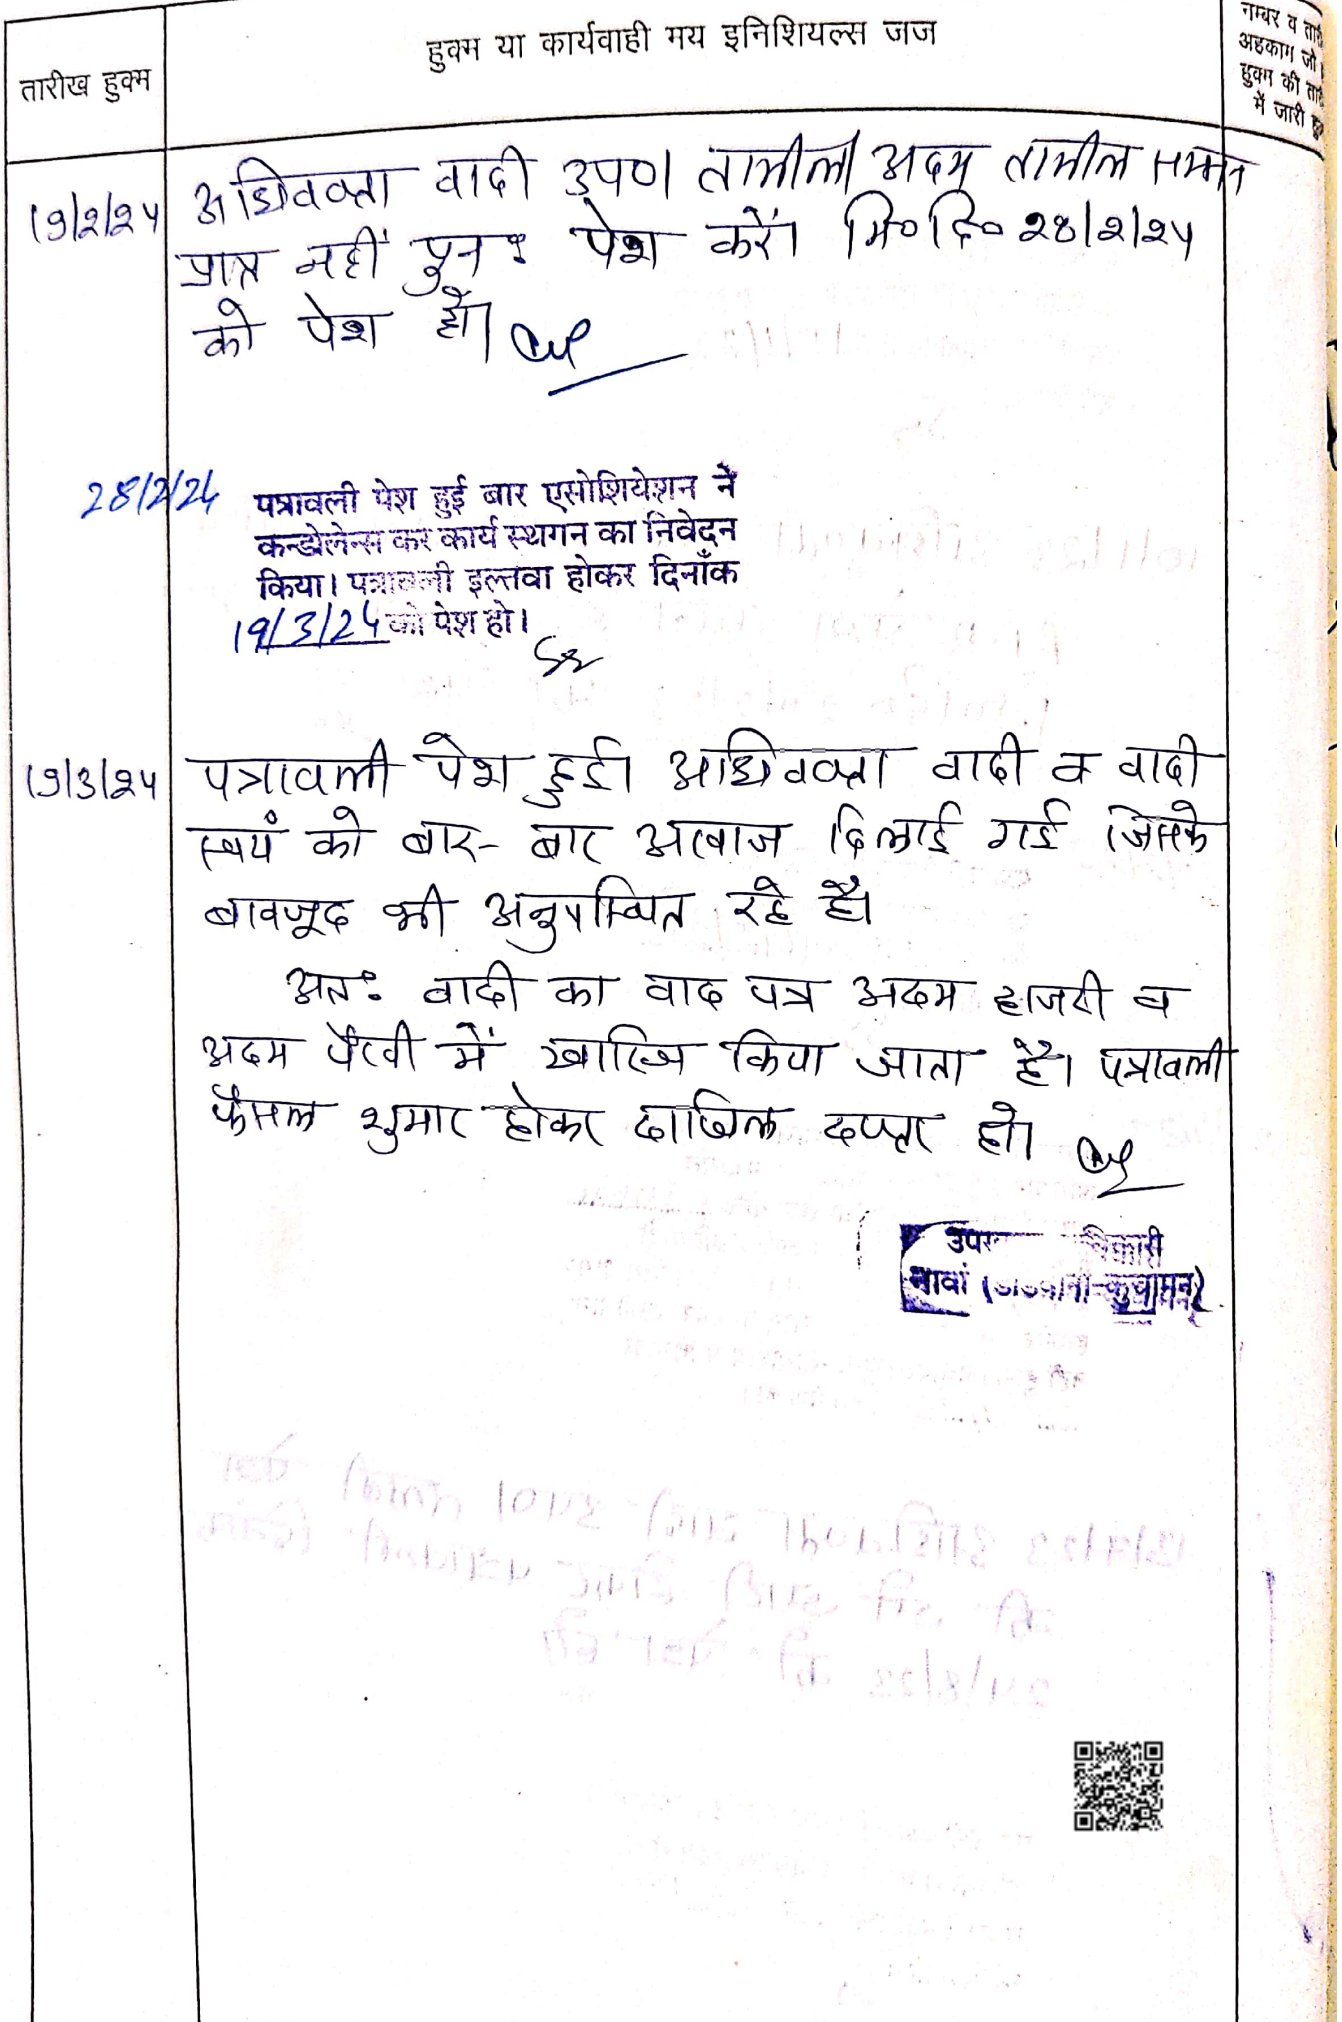 तारीख हुक्म
हुक्म या कार्यवाही मय इनिशियल्स जज
नम्बर व
अहकाम जो
हुक्म की
में जारी
19/2/24
अधिवक्ता वादी उप०। तामील/अदम तामील सम्मन
प्राप्त नहीं पुनः पेश करें। मि० दि० 28/2/24
को पेश हो।
28/2/24
पत्रावली पेश हुई बार एसोशियेशन ने
कन्डोलेन्स कर कार्य स्थगन का निवेदन
किया। पत्रावली इल्तवा होकर दिनाँक
19/3/24 को पेश हो।
19/3/24
पत्रावली पेश हुई। अधिवक्ता वादी व वादी
स्वयं को बार-बार आवाज दिलाई गई जिसके
बावजूद भी अनुपस्थित रहे है।
अतः वादी का वाद पत्र अदम हाजरी व
अदम पैरवी में खारिज किया जाता है। पत्रावली
फैसल शुमार होकर दाखिल दफ्तर हो।
नावां (डीडवाना-कुचामन)